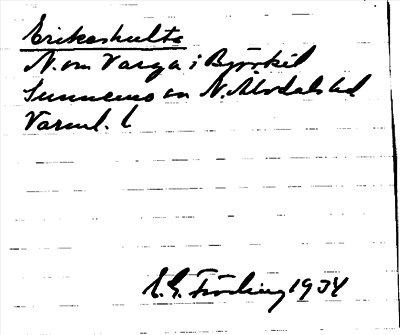 Erikashults
N. om Varga i Björkil
Sunnemo sn N. Älvdals hd
Värml. l
E. G. Fröding 1934